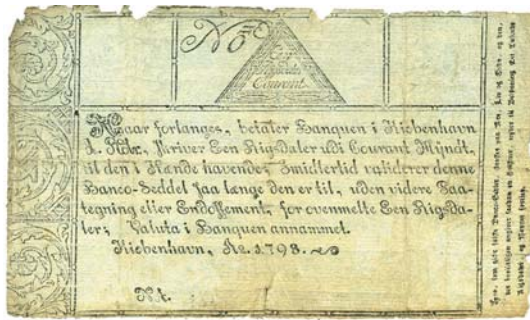 No
Een
Rigsdaler
Courant.
Naar forlanges, betaler Banquen i Kiøbenhavn
1. Rdlr, skriver Een Rigs-Daler udi Courant Mÿndt,
til den i Hænde havende; Imidlertid validerer denne
Banco-Seddel saa længe den er til, uden videre Paa-
tegning eller Endossement, for ovenmelte Een Rigsda-
ler; Valuta i Banquen annammet.
Kiøbenhavn, Ao. 1.798.
N.1.